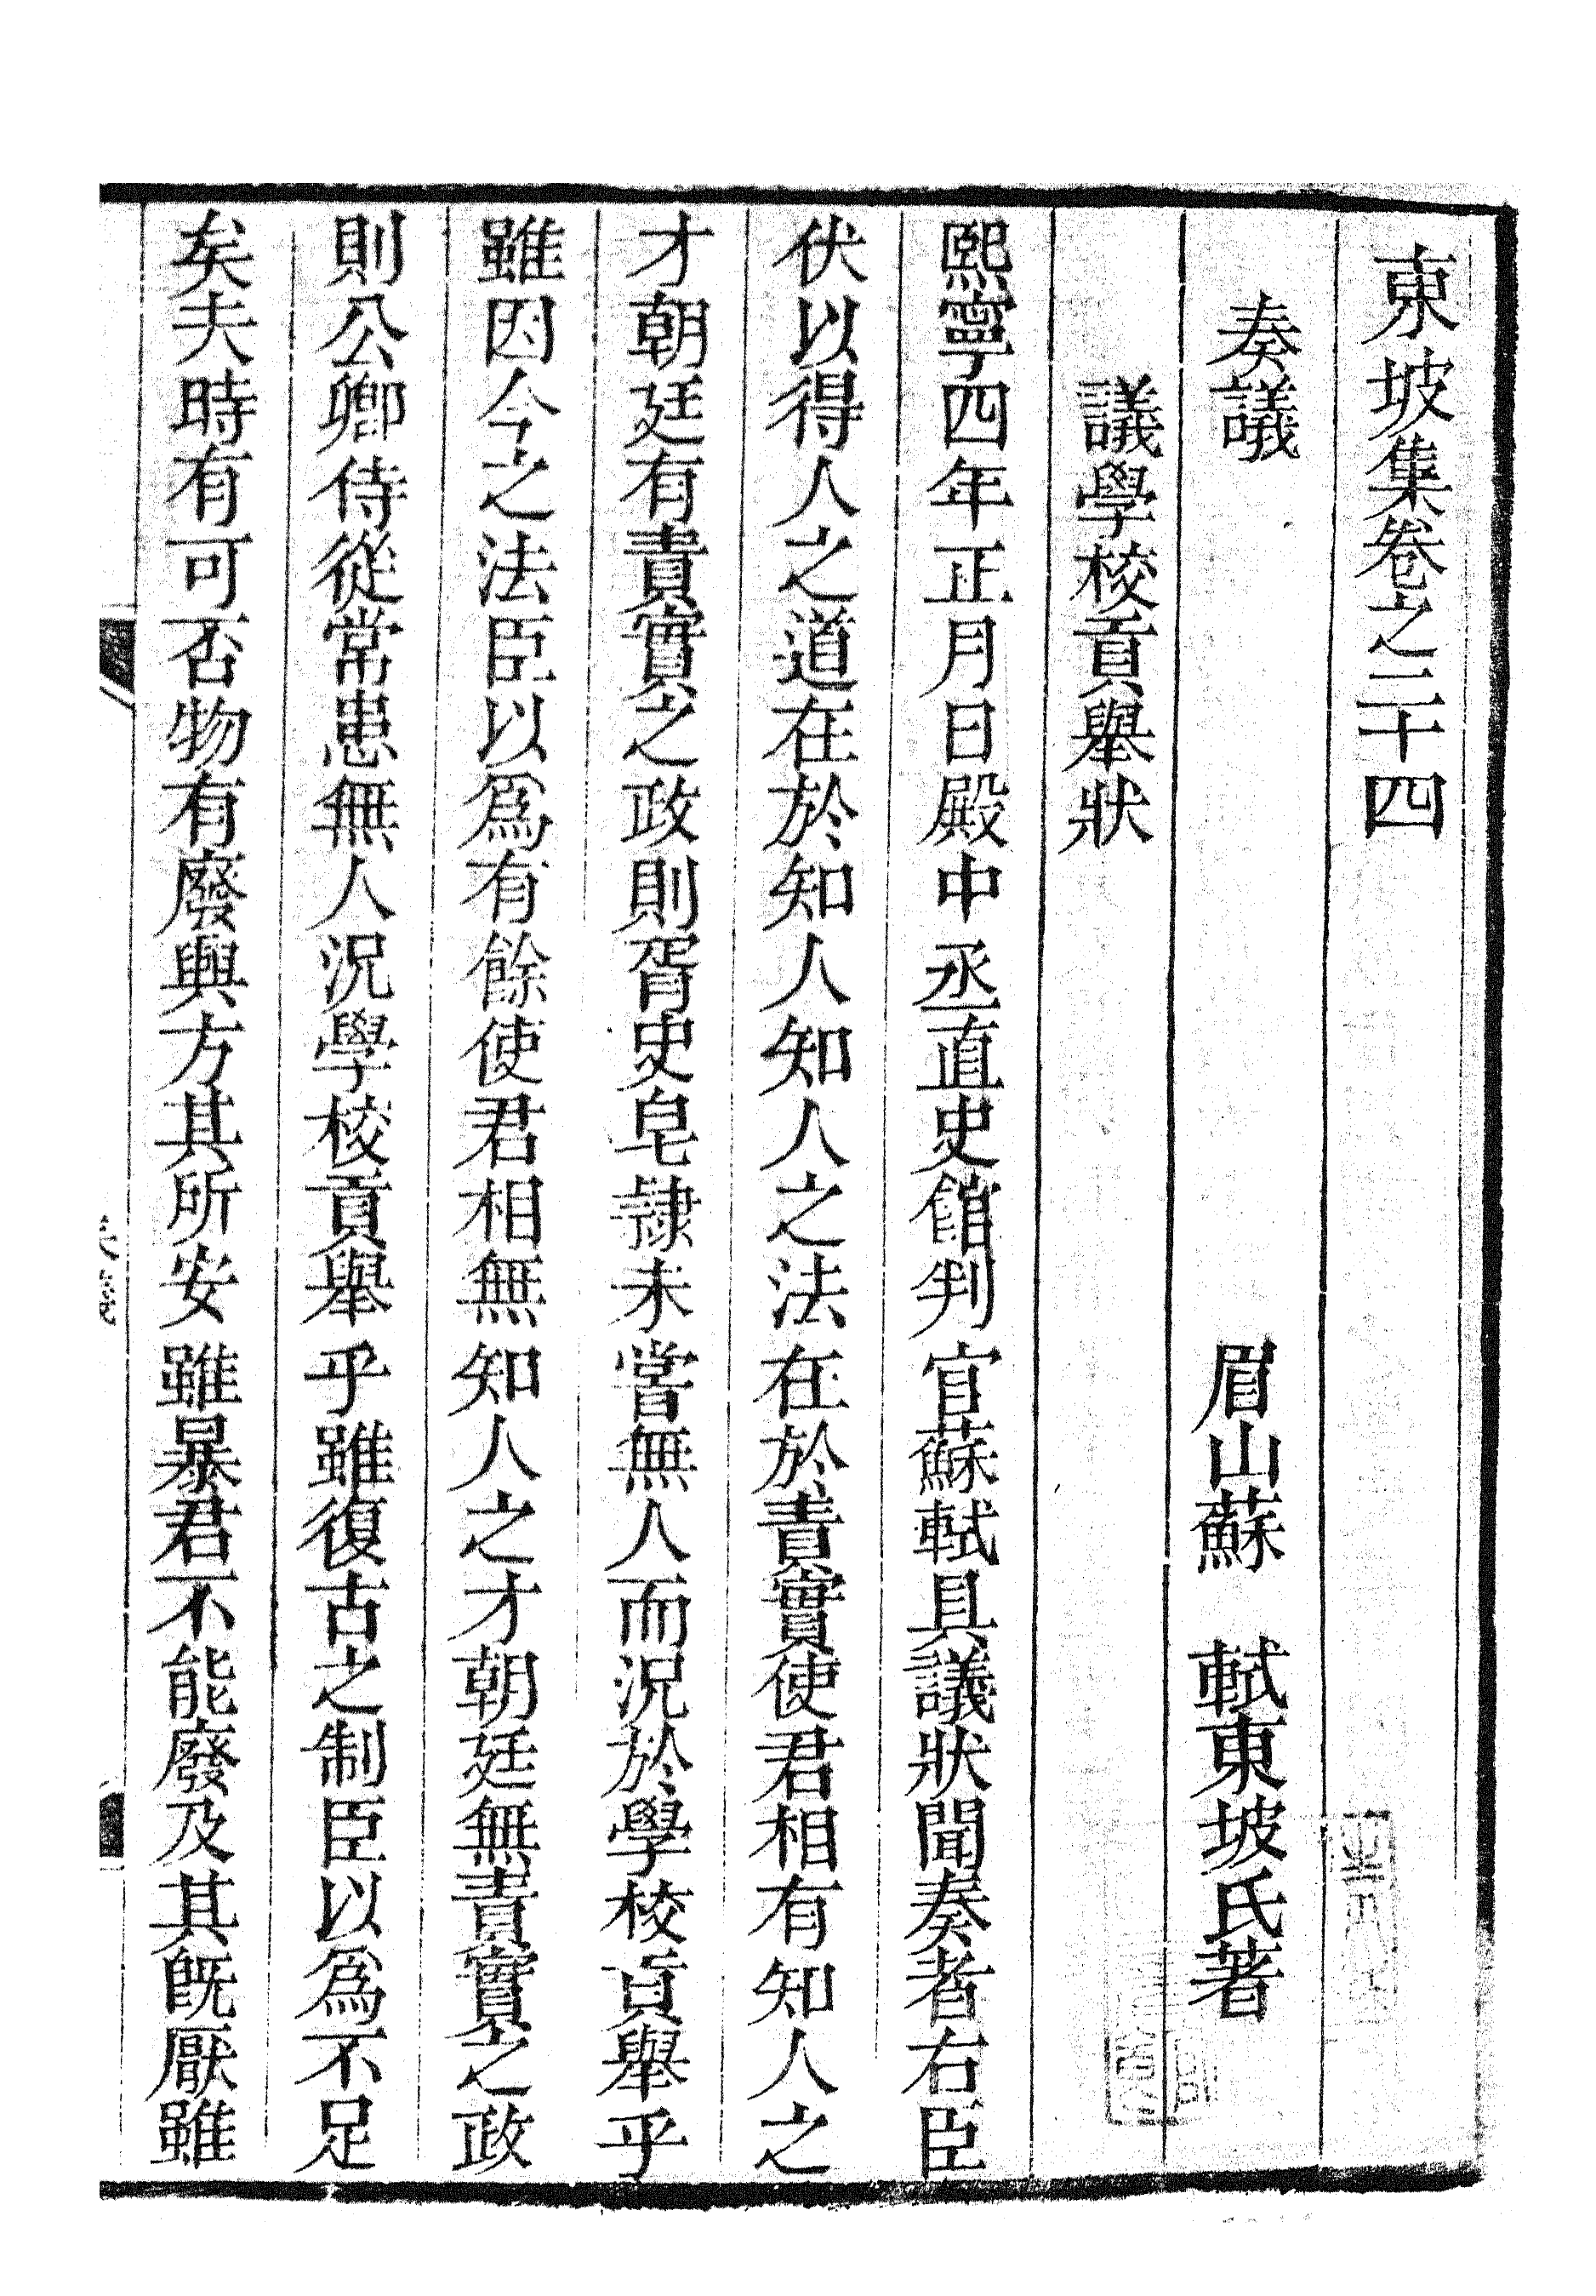 東坡集卷之二十四
奏議 眉山蘇 軾東坡氏著
議學校貢舉狀
熙寧四年正月日殿中丞直史館判官蘇軾具議狀聞奏者右臣
伏以得人之道在於知人知人之法在於責實使君相有知人之
才朝廷有責實之政則胥史皂隸未嘗無人而況於學校貢舉乎
雖因今之法臣以爲有餘使君相無知人之才朝廷無責實之政
則公卿侍從常患無人況學校貢舉乎雖復古之制臣以爲不足
矣夫時有可否物有廢興方其所安雖暴君不能廢及其既厭雖